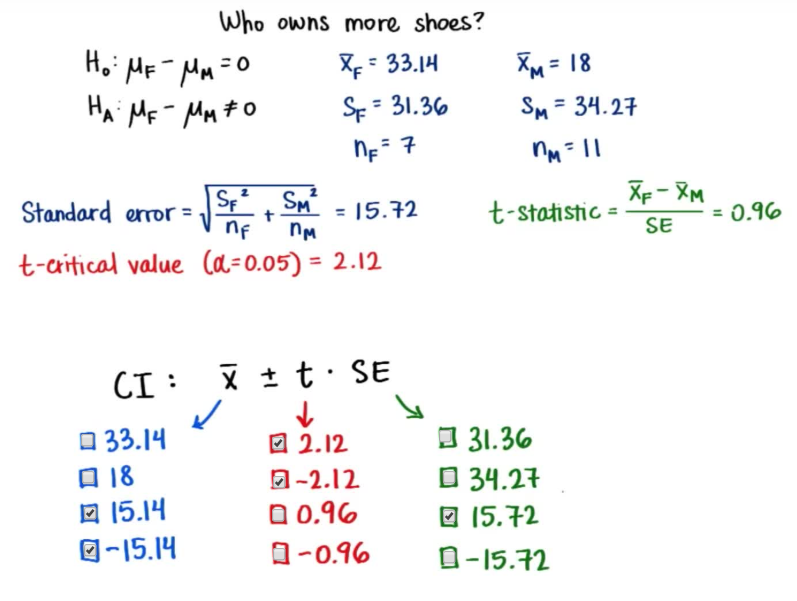 Who owns more shoes?
H₀: μF − μM = 0 x̄F = 33.14 x̄M = 18
HA: μF − μM ≠ 0 SF = 31.36 SM = 34.27
nF = 7 nM = 11
Standard error = √(SF²/nF + SM²/nM) = 15.72 t-statistic = (x̄F − x̄M)/SE = 0.96
t-critical value (α=0.05) = 2.12
CI: x̄ ± t · SE
☐ 33.14 ☑ 2.12 ☐ 31.36
☐ 18 ☑ -2.12 ☐ 34.27
☑ 15.14 ☐ 0.96 ☑ 15.72
☑ -15.14 ☐ -0.96 ☐ -15.72